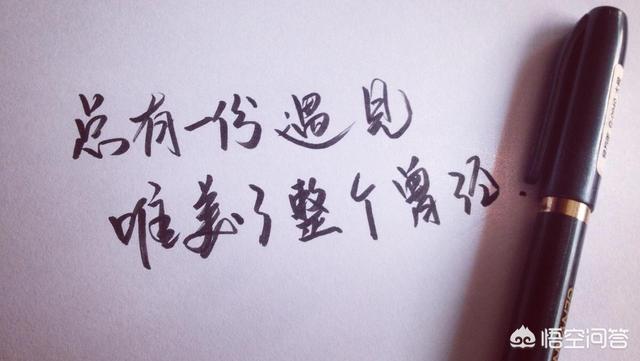 总有一份遇見
唯美了整个曾经.
悟空问答